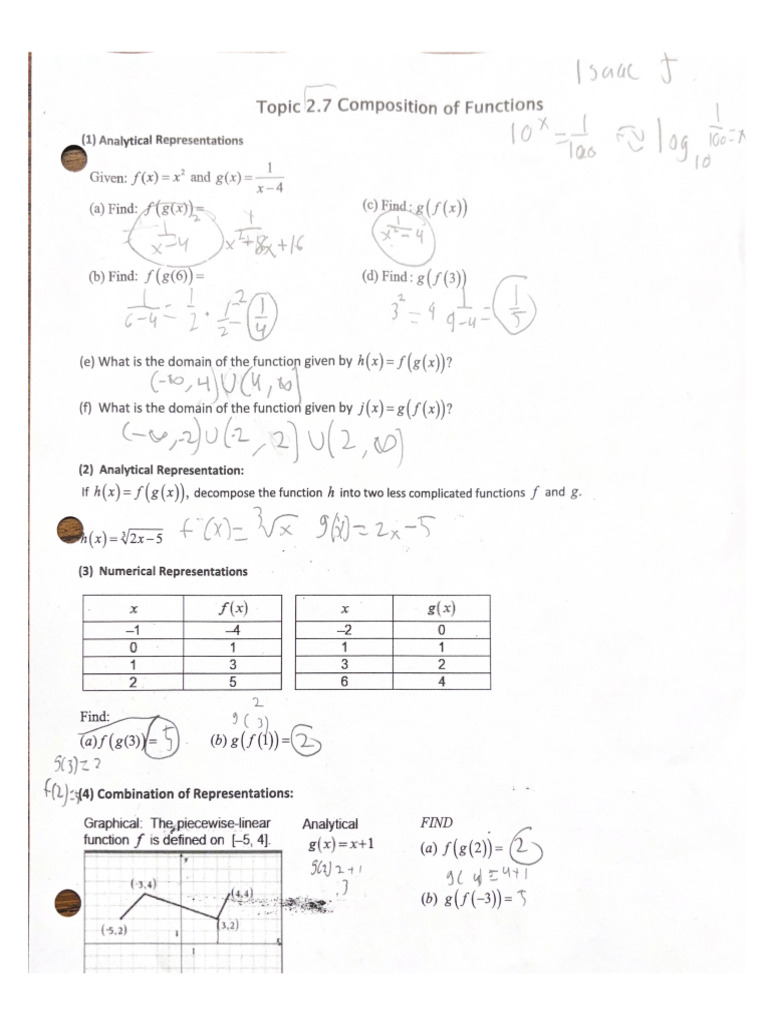 Isaac J.
Topic 2.7 Composition of Functions
10^x = 1/100 ≈ log_10 1/100 = x
(1) Analytical Representations
Given: f(x) = x² and g(x) = 1/(x−4)
(a) Find: f(g(x)) =
(1/(x−4))² 1/(x²+8x+16)
(c) Find: g(f(x))
1/(x²−4)
(b) Find: f(g(6)) =
1/(6−4) = 1/2 · 1/2² = 1/4
(d) Find: g(f(3))
3² = 9 1/(9−4) = 1/5
(e) What is the domain of the function given by h(x) = f(g(x))?
(−∞, 4) ∪ (4, ∞)
(f) What is the domain of the function given by j(x) = g(f(x))?
(−∞, −2) ∪ (−2, 2) ∪ (2, ∞)
(2) Analytical Representation:
If h(x) = f(g(x)), decompose the function h into two less complicated functions f and g.
h(x) = ∛(2x−5) f(x) = ∛x g(x) = 2x−5
(3) Numerical Representations
x f(x) x g(x)
−1 −4 −2 0
0 1 1 1
1 3 3 2
2 5 6 4
2
Find: g(3)
(a) f(g(3)) = 5 (b) g(f(1)) = 2
g(3) = 2
f(2) = 5
(4) Combination of Representations:
Graphical: The piecewise-linear
function f is defined on [−5, 4].
Analytical
g(x) = x+1
g(2) 2+1
3
FIND
(a) f(g(2)) = 2
g(4) = 4+1
(b) g(f(−3)) = 5
y
(-3,4) (4,4)
(-5,2) (3,2)
1
1